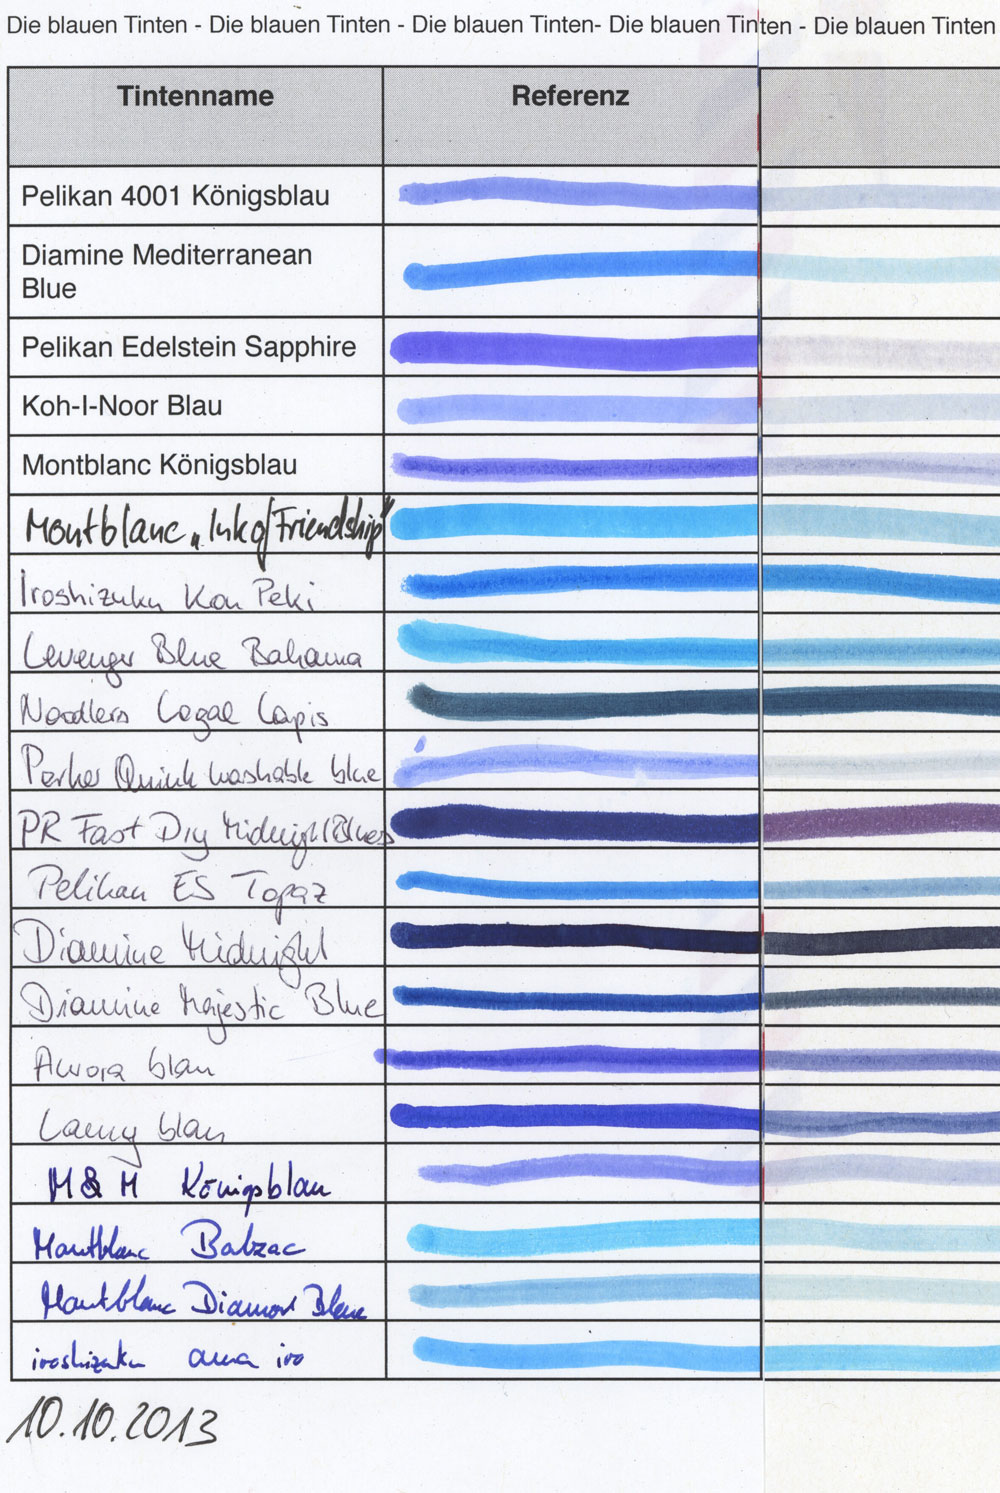 Die blauen Tinten - Die blauen Tinten - Die blauen Tinten- Die blauen Tinten - Die blauen Tinten
Tintenname Referenz
Pelikan 4001 Königsblau
Diamine Mediterranean
Blue
Pelikan Edelstein Sapphire
Koh-I-Noor Blau
Montblanc Königsblau
Montblanc „Ink of Friendship"
Iroshizuku Kon Peki
Levenger Blue Bahama
Noodlers Legal Lapis
Parker Quink washable blue
PR Fast Dry Midnight Blues
Pelikan ES Topaz
Diamine Midnight
Diamine Majestic Blue
Aurora blau
Lamy blau
M & M Königsblau
Montblanc Balzac
Montblanc Diamond Blue
iroshizuku ama iro
10.10.2013